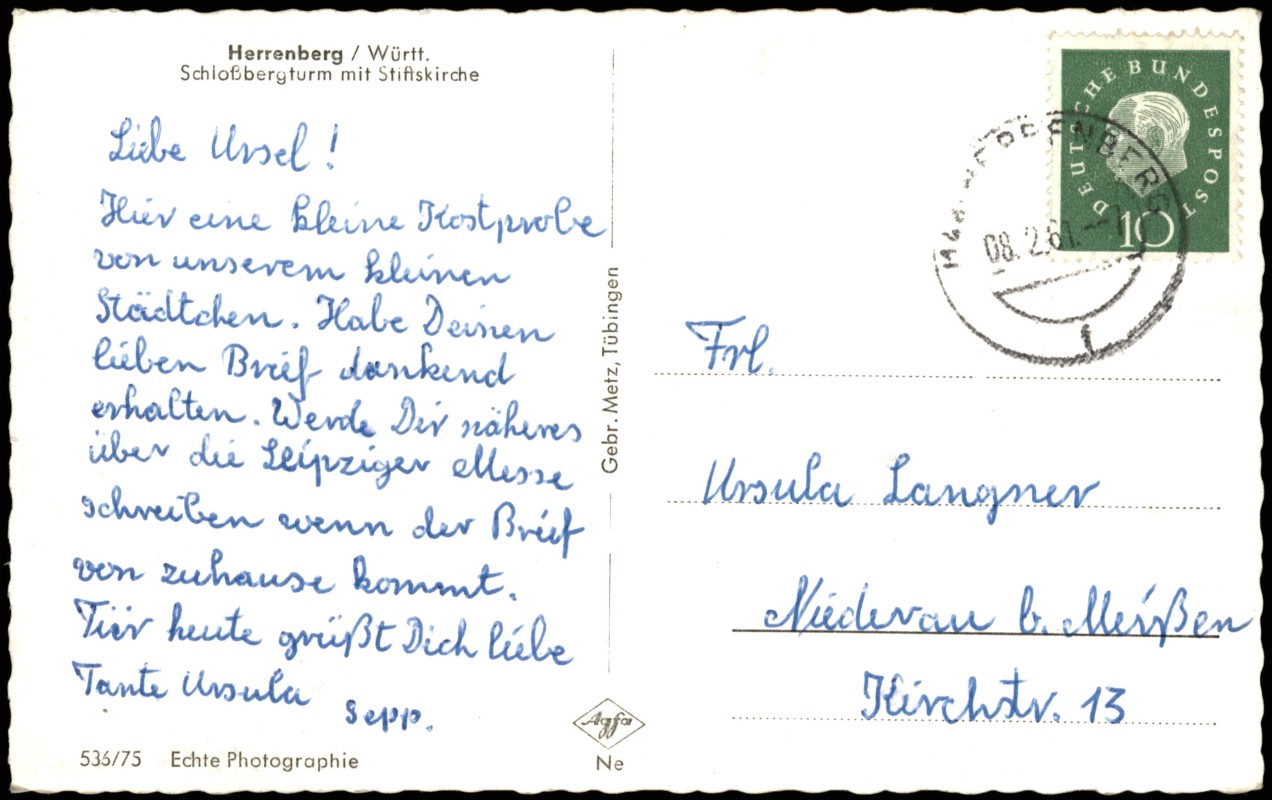 Herrenberg / Württ.
Schloßbergturm mit Stiftskirche
Liebe Ursel!
Hier eine kleine Kostprobe
von unserem kleinen
Städtchen. Habe Deinen
lieben Brief dankend
erhalten. Werde Dir näheres
über die Leipziger Messe
schreiben wenn der Brief
von zuhause kommt.
Für heute grüßt Dich liebe
Tante Ursula
Sepp.
536/75 Echte Photographie
Gebr. Metz, Tübingen
Agfa
Ne
DEUTSCHE BUNDESPOST
10
HERRENBERG
08.2.61.
f
Frl.
Ursula Langner
Niederau b. Meißen
Kirchstr. 13